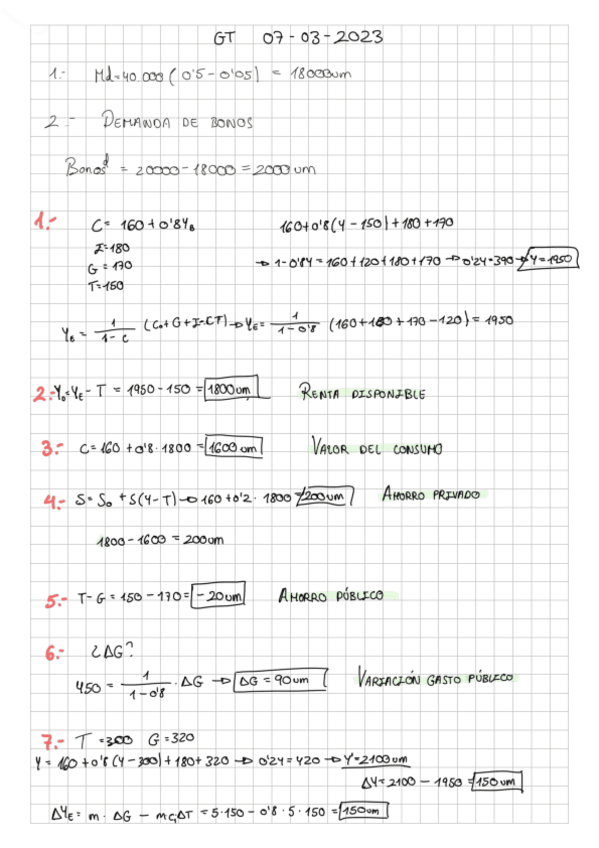 GT 07-03-2023
1.- Md=40.000 (0'5-0'05) = 18000um
2.- DEMANDA DE BONOS
Bonosᵈ = 20000-18000 = 2000 um
1.- C= 160+0'8Y₀ 160+0'8(Y-150)+180+170
I=180
G=170 → 1-0'8Y=160+120+180+170 → 0'2Y=390 → Y=1950
T=150
Y₀ = 1/1-c (C₀+G+I-CT) → Yₑ= 1/1-0'8 (160+180+170-120) = 1950
2.- Y₀=Yₑ-T = 1950-150 = 1800um RENTA DISPONIBLE
3.- C=160+0'8·1800 = 1600um VALOR DEL CONSUMO
4.- S=S₀+S(Y-T) → 160+0'2·1800 = 200um AHORRO PRIVADO
1800-1600 = 200um
5.- T-G=150-170= -20um AHORRO PÚBLICO
6.- ¿ΔG?
450 = 1/1-0'8 ·ΔG → ΔG=90um VARIACIÓN GASTO PÚBLICO
7.- T=300 G=320
Y=160+0'8(Y-300)+180+320 → 0'2Y=420 → Y=2100um
ΔY=2100-1950 = 150um
ΔYₑ= m·ΔG - mC₁ΔT = 5·150-0'8·5·150 = 150um